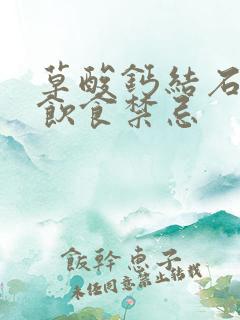 草酸鈣結石
飲食禁忌
飯幹惠子
未经同意禁止转载